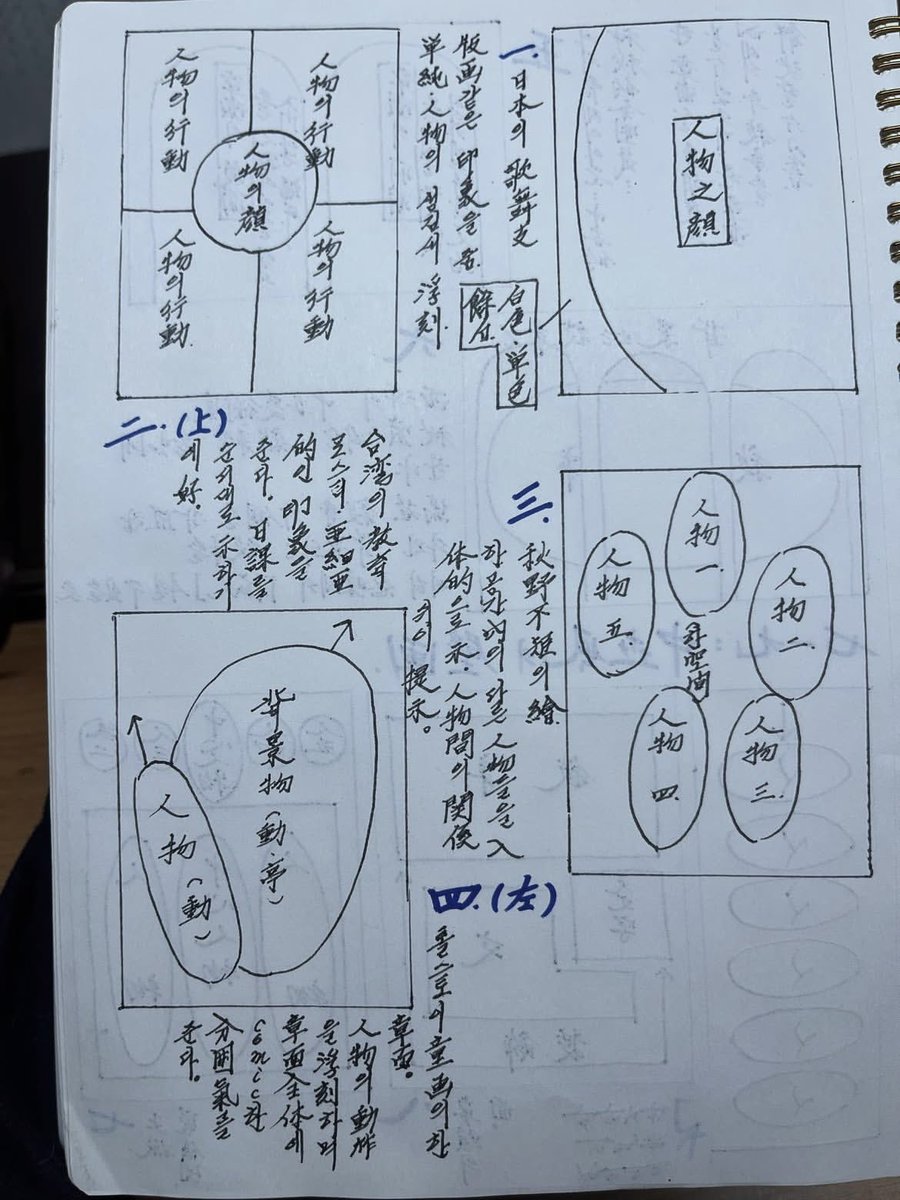 一.
日本의 歌舞支
版画같은 印象을 줌.
単純 人物의 섬김새 浮刻.
人物之顔
白色·単色
餘白
人物의 行動
人物의 行動
人物의 顔
人物의 行動
人物의 行動.
二.(上)
台湾의 教育
포스터. 亜細亜
的인 印象을
준다. 日課를
순서대로 示하기
에 好.
三.
秋野不矩의 繪.
한 공간 内의 다른 人物들을 入
体的으로 示. 人物間의 関係
人物 一.
人物 二.
人物 三.
人物 四.
人物 五.
주이 提示。
四.(左)
톨스토이 童画의 한
章面.
人物의 動作
을 浮刻하며
章面全体에
comic한
分囲氣를
준다。
背景物(動·亭)
人物(動)